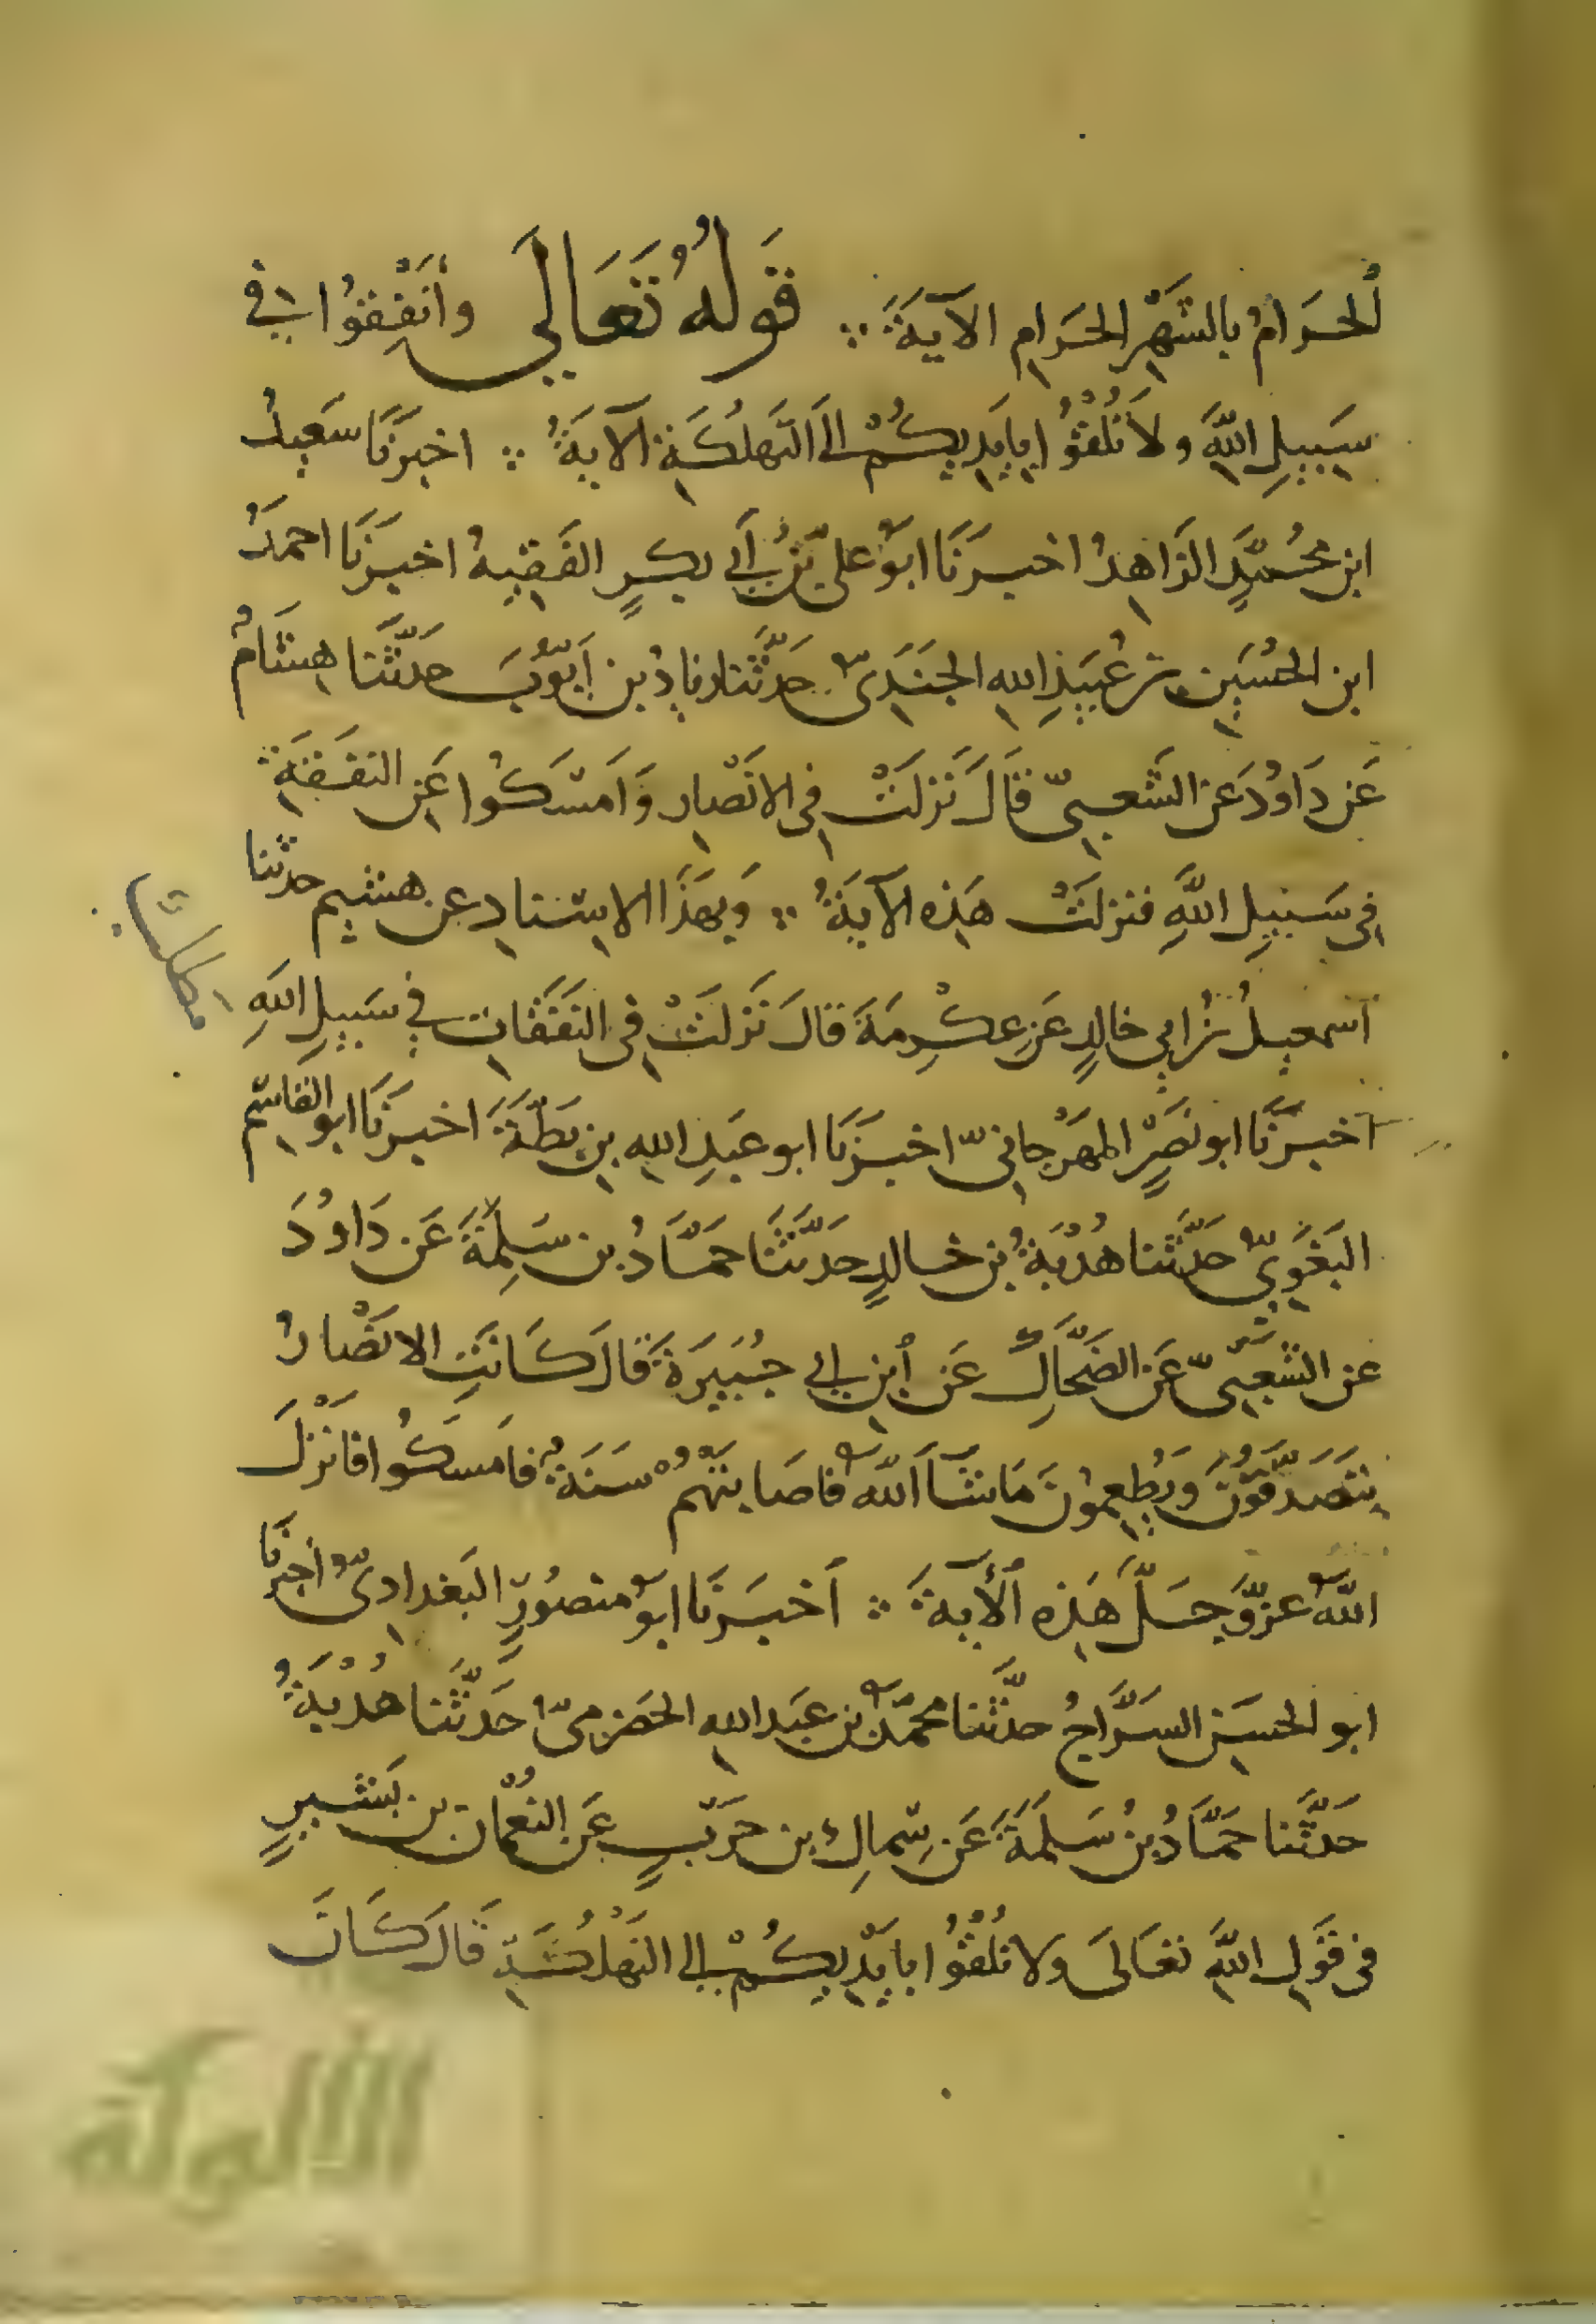 الحَرَامُ بالشَّهْرِ الحَرَامِ الآيَةَ ∴ قَولُهُ تَعَالَى وأَنْفِقُوا فِي
سَبِيلِ اللَّهِ ولَا تُلْقُوْا بِأَيْدِيكُمْ الَى التَّهْلُكَةِ الآيَةُ ∴ اخبَرَنَا سَعِيدُ
ابن محمدٍ الزَاهِدُ اخبَرَنَا ابُو علىّ بْنُ أَبِي بكرٍ الفَقِيهُ اخبَرَنَا احمَدُ
ابن الحُسَينِ بن عُبَيْدِ اللهِ الجَنَدِىّ حَدَّثَنا زيادُ بن أَيّوُبَ حدثَّنَا هشَامٌ
عَن دَاوُدَ عَن الشَّعبِىّ قَالَ نَزَلَتْ فِى الانْصَارِ وَامْسَكُوا عَنِ النَفَقَةِ
فِى سَبِيلِ اللَّهِ فنزلَتْ هَذِه الآيَةُ ∴ وَبِهَذَا الاسْنادِ عن هشيم حدثنا
اسمعيلُ بْنُ ابِى خالِدٍ عَن عِكْرِمَةَ قالَ نَزَلَتْ فِى النَفَقَاتِ فِي سَبِيلِ اللَّهِ
مطلب
اخبَرَنَا ابو نَصْرٍ المهرَجانِىّ اخبَرَنَا ابو عبدِ اللهِ بن بَطَّةَ اخبرَنَا ابو القَاسِم
البَغَوِىّ حَدَّثَنا هُدْبَةُ بن خالدٍ حَدَّثَنَا حَمَّادُ بن سَلَمَةَ عَن دَاوُدَ
عن الشَّعبِىّ عَن الضَحَّاكِ عَن ابن ابي جُبَيرَةَ قالَ كَانَتِ الانْصَارُ
يتَصَدَّقُونَ ويُطعِموُنَ مَا شَآءَ اللّهُ فاصَابتْهُمْ سَنَةٌ فامَسَكُوا فانزلَ
اللّهُ عزوَّجَلَّ هَذِه الآيةَ ∴ اخبَرَنَا ابو منصُورٍ البَغدادِىّ اخبرنَا
ابو الحسَنِ السَرَّاجُ حدثَّنا محمدُ بن عبَد اللهِ الحَضرمىّ حَدَّثَنا هُدْبَةُ
حَدَّثَنا حَمَّادُ بن سَلَمَةَ عَن سِماكِ بن حَرْبٍ عَن النُعْمَانِ بن بَشِيرٍ
فى قَولِ اللَّهِ تعَالَى ولا تُلْقُوْا بِأَيْدِيكُمْ الى التَهْلُكَةِ قَالَ كَانَ
الألوكة